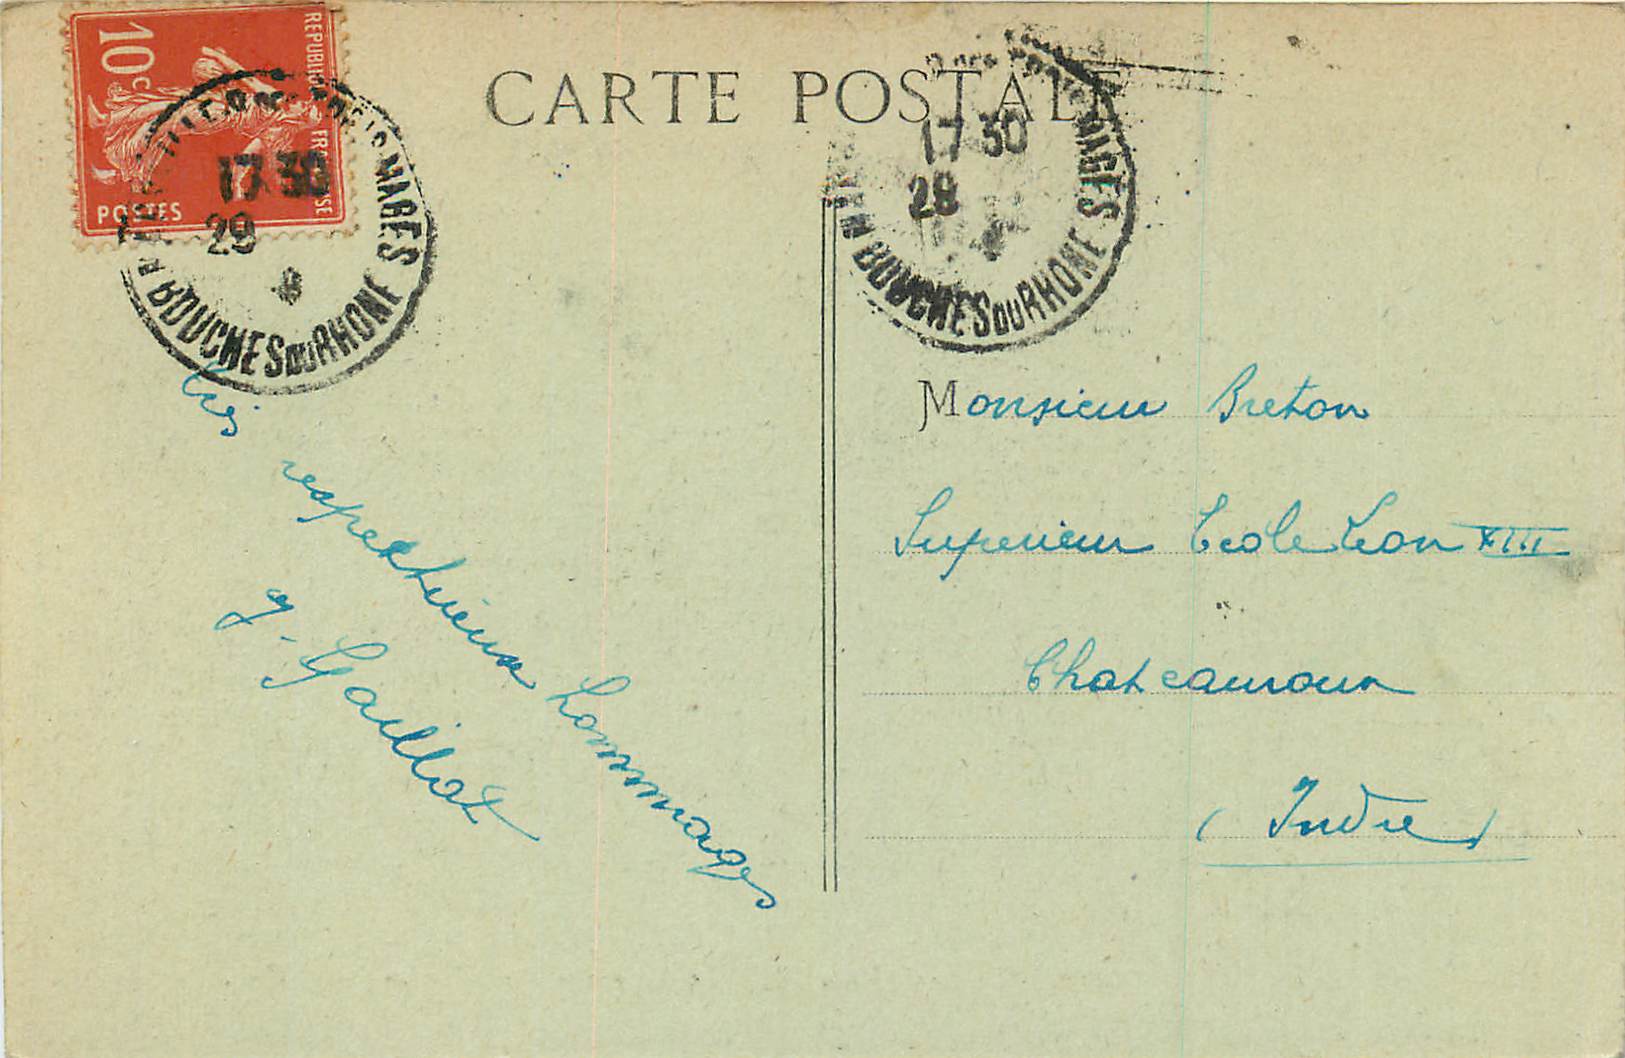 CARTE POSTALE
10c
REPUBLIQUE FRANÇAISE
POSTES
17 30
29
MARES
BOUCHES DU RHONE
17 30
28
MAGES
BOUCHES DU RHONE
Très
respectueux hommages
J. Gaillat
Monsieur Breton
Superieur Ecole Leon XIII
Chateauroux
(Indre)